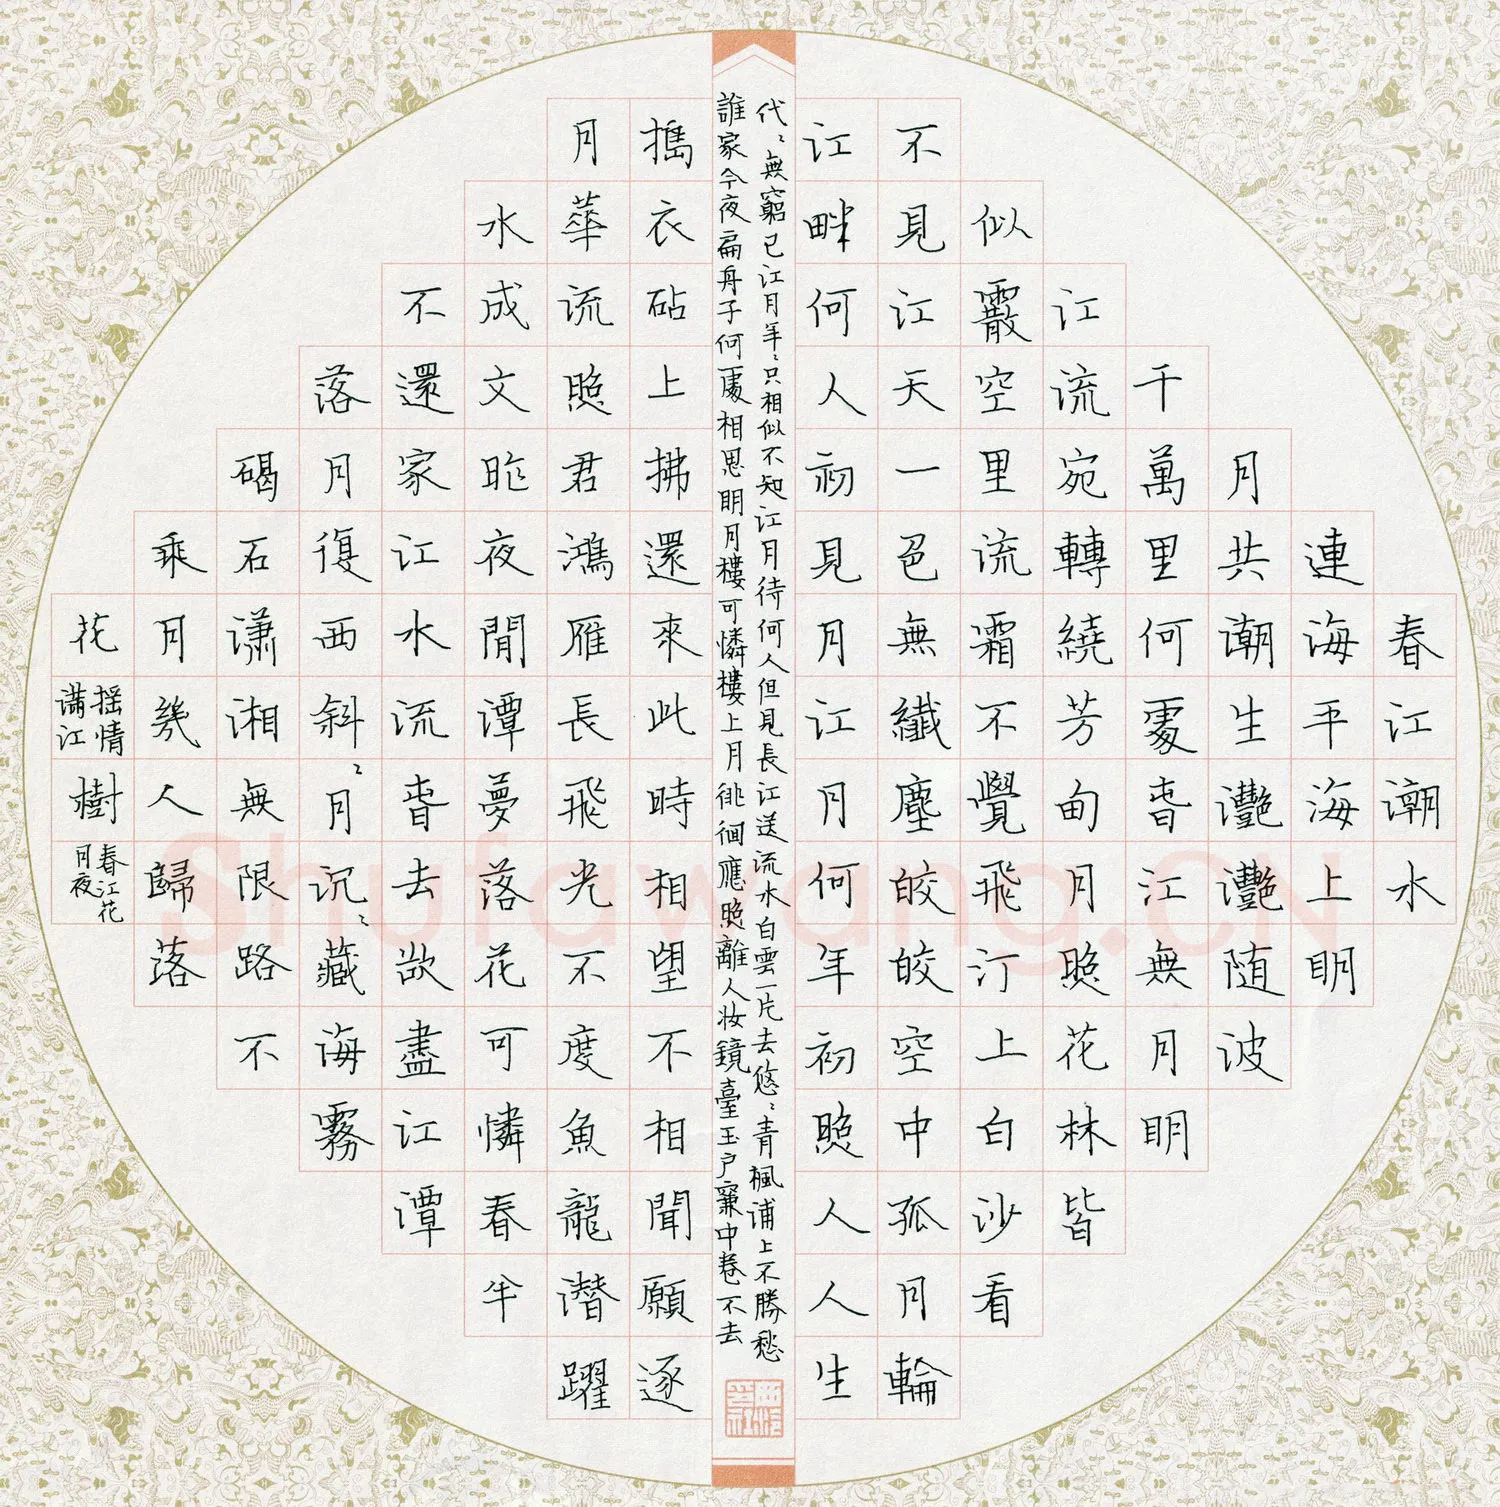 春江潮水
連海平海上明
月共潮生灩灩随波
千萬里何處春江無月明
江流宛轉繞芳甸月照花林皆
似霰空里流霜不覺飛汀上白沙看
不見江天一色無纖塵皎皎空中孤月輪
江畔何人初見月江月何年初照人人生
代〻無窮已江月年〻只相似不知江月待何人但見長江送流水白雲一片去悠〻青楓浦上不勝愁
誰家今夜扁舟子何處相思明月樓可憐樓上月徘徊應照離人妝鏡臺玉戶簾中卷不去
擣衣砧上拂還來此時相望不相聞願逐
月華流照君鴻雁長飛光不度魚龍潛躍
水成文昨夜閒潭夢落花可憐春半
不還家江水流春去欲盡江潭
落月復西斜〻月沉〻藏海霧
碣石瀟湘無限路不
乘月幾人歸落
花
摇情
满江
樹
春江花
月夜
Shufawang.CN